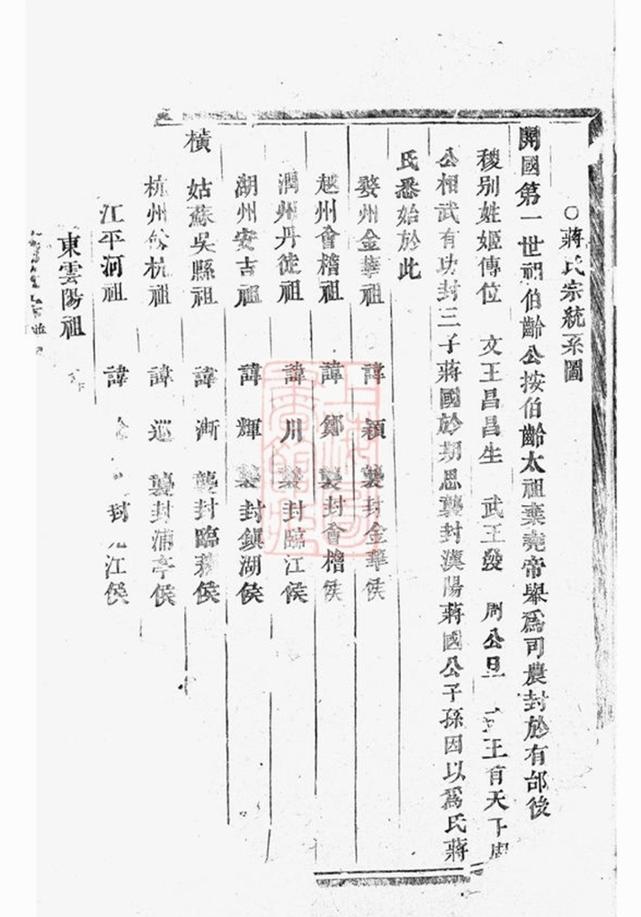 ○蔣氏宗統系圖
開國第一世祖伯齡公按伯齡太祖棄堯帝舉爲司農封於有邰後
稷別姓姬傳位 文王昌昌生 武王發 周公旦 王有天下周
公相武有功封三子蔣國於期思襲封漢陽蔣國公子孫因以爲氏蔣
氏悉始於此
婺州金華祖 諱穎 襲封金華侯
越州會稽祖 諱鄭 襲封會稽侯
潤州丹徒祖 諱川 襲封臨江侯
湖州安吉祖 諱輝 襲封鎮湖侯
橫 姑蘇吳縣祖 諱漸 襲封臨蘇侯
杭州餘杭祖 諱巡 襲封浦亭侯
江平河祖 諱 封九江侯
東雲陽祖